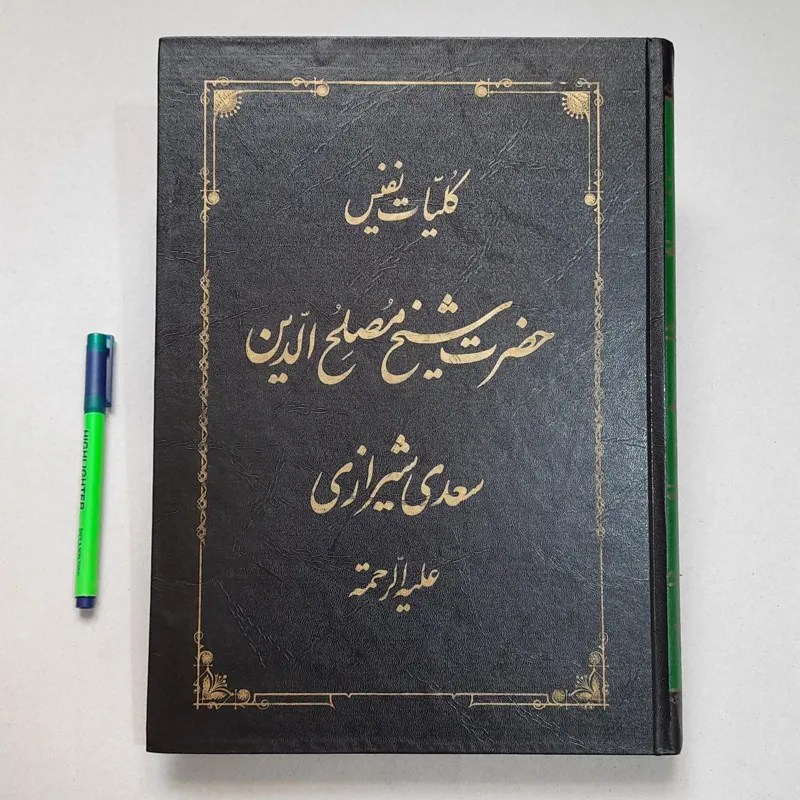 کُلیّات نفیس
حضرت شیخ مُصلِحُ الدّین
سعدی شیرازی
علیه الرّحمة
HIGHLIGHTER